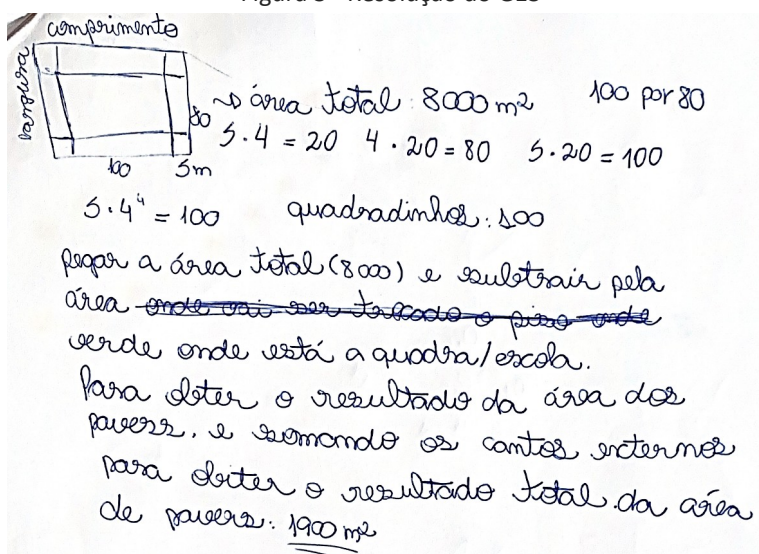 comprimento
largura
80
100
5m
→ área total: 8000 m² 100 por 80
5 · 4 = 20 4 · 20 = 80 5 · 20 = 100
5 · 4⁴ = 100 quadradinhos: 100
pegar a área total (8000) e subtrair pela
área onde vai ser trocado o piso onde
verde onde está a quadra/escola.
Para obter o resultado da área dos
pavers. e somando os cantos externos
para obter o resultado total da área
de pavers: 1900 m²